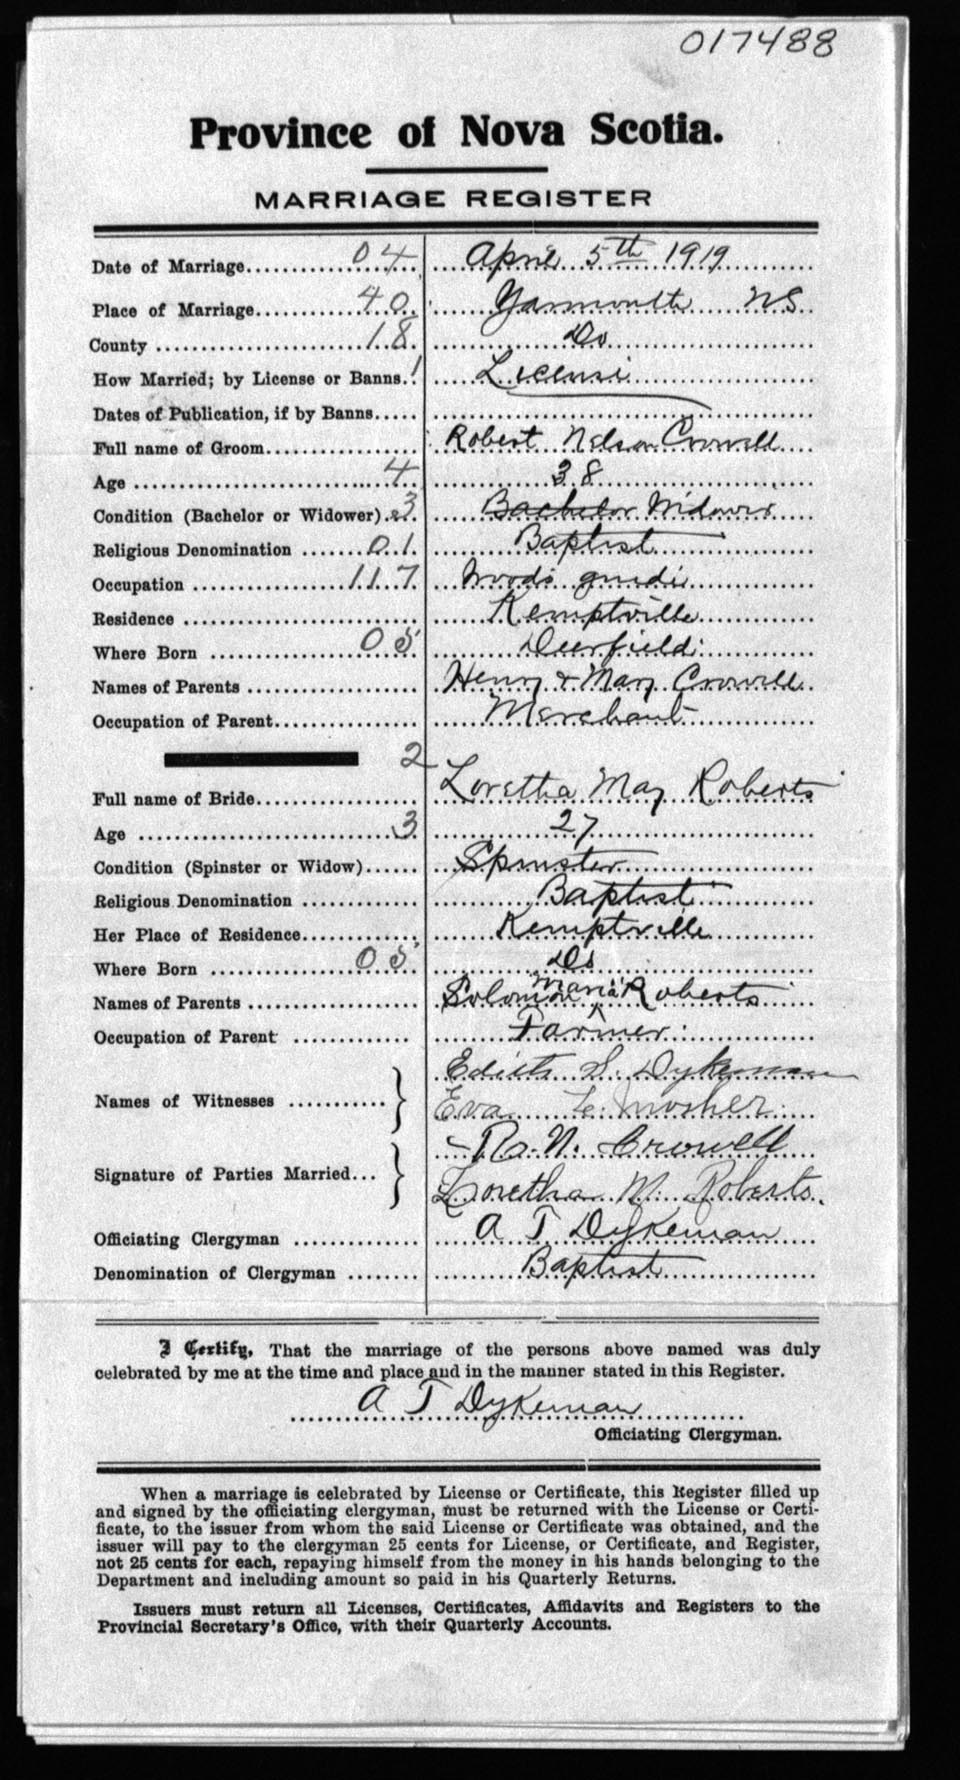 017488
Province of Nova Scotia.
MARRIAGE REGISTER
Date of Marriage 04 April 5th 1919
Place of Marriage 40 Yarmouth NS
County 18 Do
How Married; by License or Banns 1 License
Dates of Publication, if by Banns
Full name of Groom Robert Nelson Crowell
Age 4 38
Condition (Bachelor or Widower) 3 Bachelor Widower
Religious Denomination 01 Baptist
Occupation 117 Woods guide
Residence Kemptville
Where Born 05 Deerfield
Names of Parents Henry & Mary Crowell
Occupation of Parent Merchant
2
Full name of Bride Loretha May Roberts
Age 3 27
Condition (Spinster or Widow) Spinster
Religious Denomination Baptist
Her Place of Residence Kemptville
Where Born 05 Do
Names of Parents Solomon Maria Roberts
Occupation of Parent Farmer
Names of Witnesses Edith S. Dykeman
Eva L. Mosher
Signature of Parties Married R. N. Crowell
Loretha M. Roberts.
Officiating Clergyman A T Dykeman
Denomination of Clergyman Baptist
I Certify, That the marriage of the persons above named was duly
celebrated by me at the time and place and in the manner stated in this Register.
A T Dykeman
Officiating Clergyman.
When a marriage is celebrated by License or Certificate, this Register filled up
and signed by the officiating clergyman, must be returned with the License or Certi-
ficate, to the issuer from whom the said License or Certificate was obtained, and the
issuer will pay to the clergyman 25 cents for License, or Certificate, and Register,
not 25 cents for each, repaying himself from the money in his hands belonging to the
Department and including amount so paid in his Quarterly Returns.
Issuers must return all Licenses, Certificates, Affidavits and Registers to the
Provincial Secretary's Office, with their Quarterly Accounts.